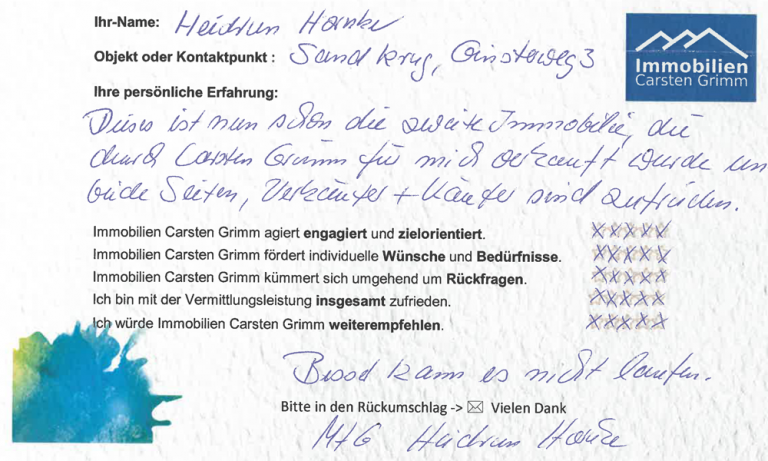 Ihr-Name: Heidrun Hornke
Immobilien
Carsten Grimm
Objekt oder Kontaktpunkt : Sandkrug, Ginsterweg 3
Ihre persönliche Erfahrung:
Dieses ist nun schon die zweite Immobilie, die
durch Carsten Grimm für mich verkauft wurde un
beide Seiten, Verkäufer + Käufer sind zufrieden.
Immobilien Carsten Grimm agiert engagiert und zielorientiert. XXXXX
Immobilien Carsten Grimm fördert individuelle Wünsche und Bedürfnisse. XXXXX
Immobilien Carsten Grimm kümmert sich umgehend um Rückfragen. XXXXX
Ich bin mit der Vermittlungsleistung insgesamt zufrieden. XXXXX
Ich würde Immobilien Carsten Grimm weiterempfehlen. XXXXX
kann es nicht laufen.
Bitte in den Rückumschlag -> ✉ Vielen Dank
MfG Heidrun Hornke